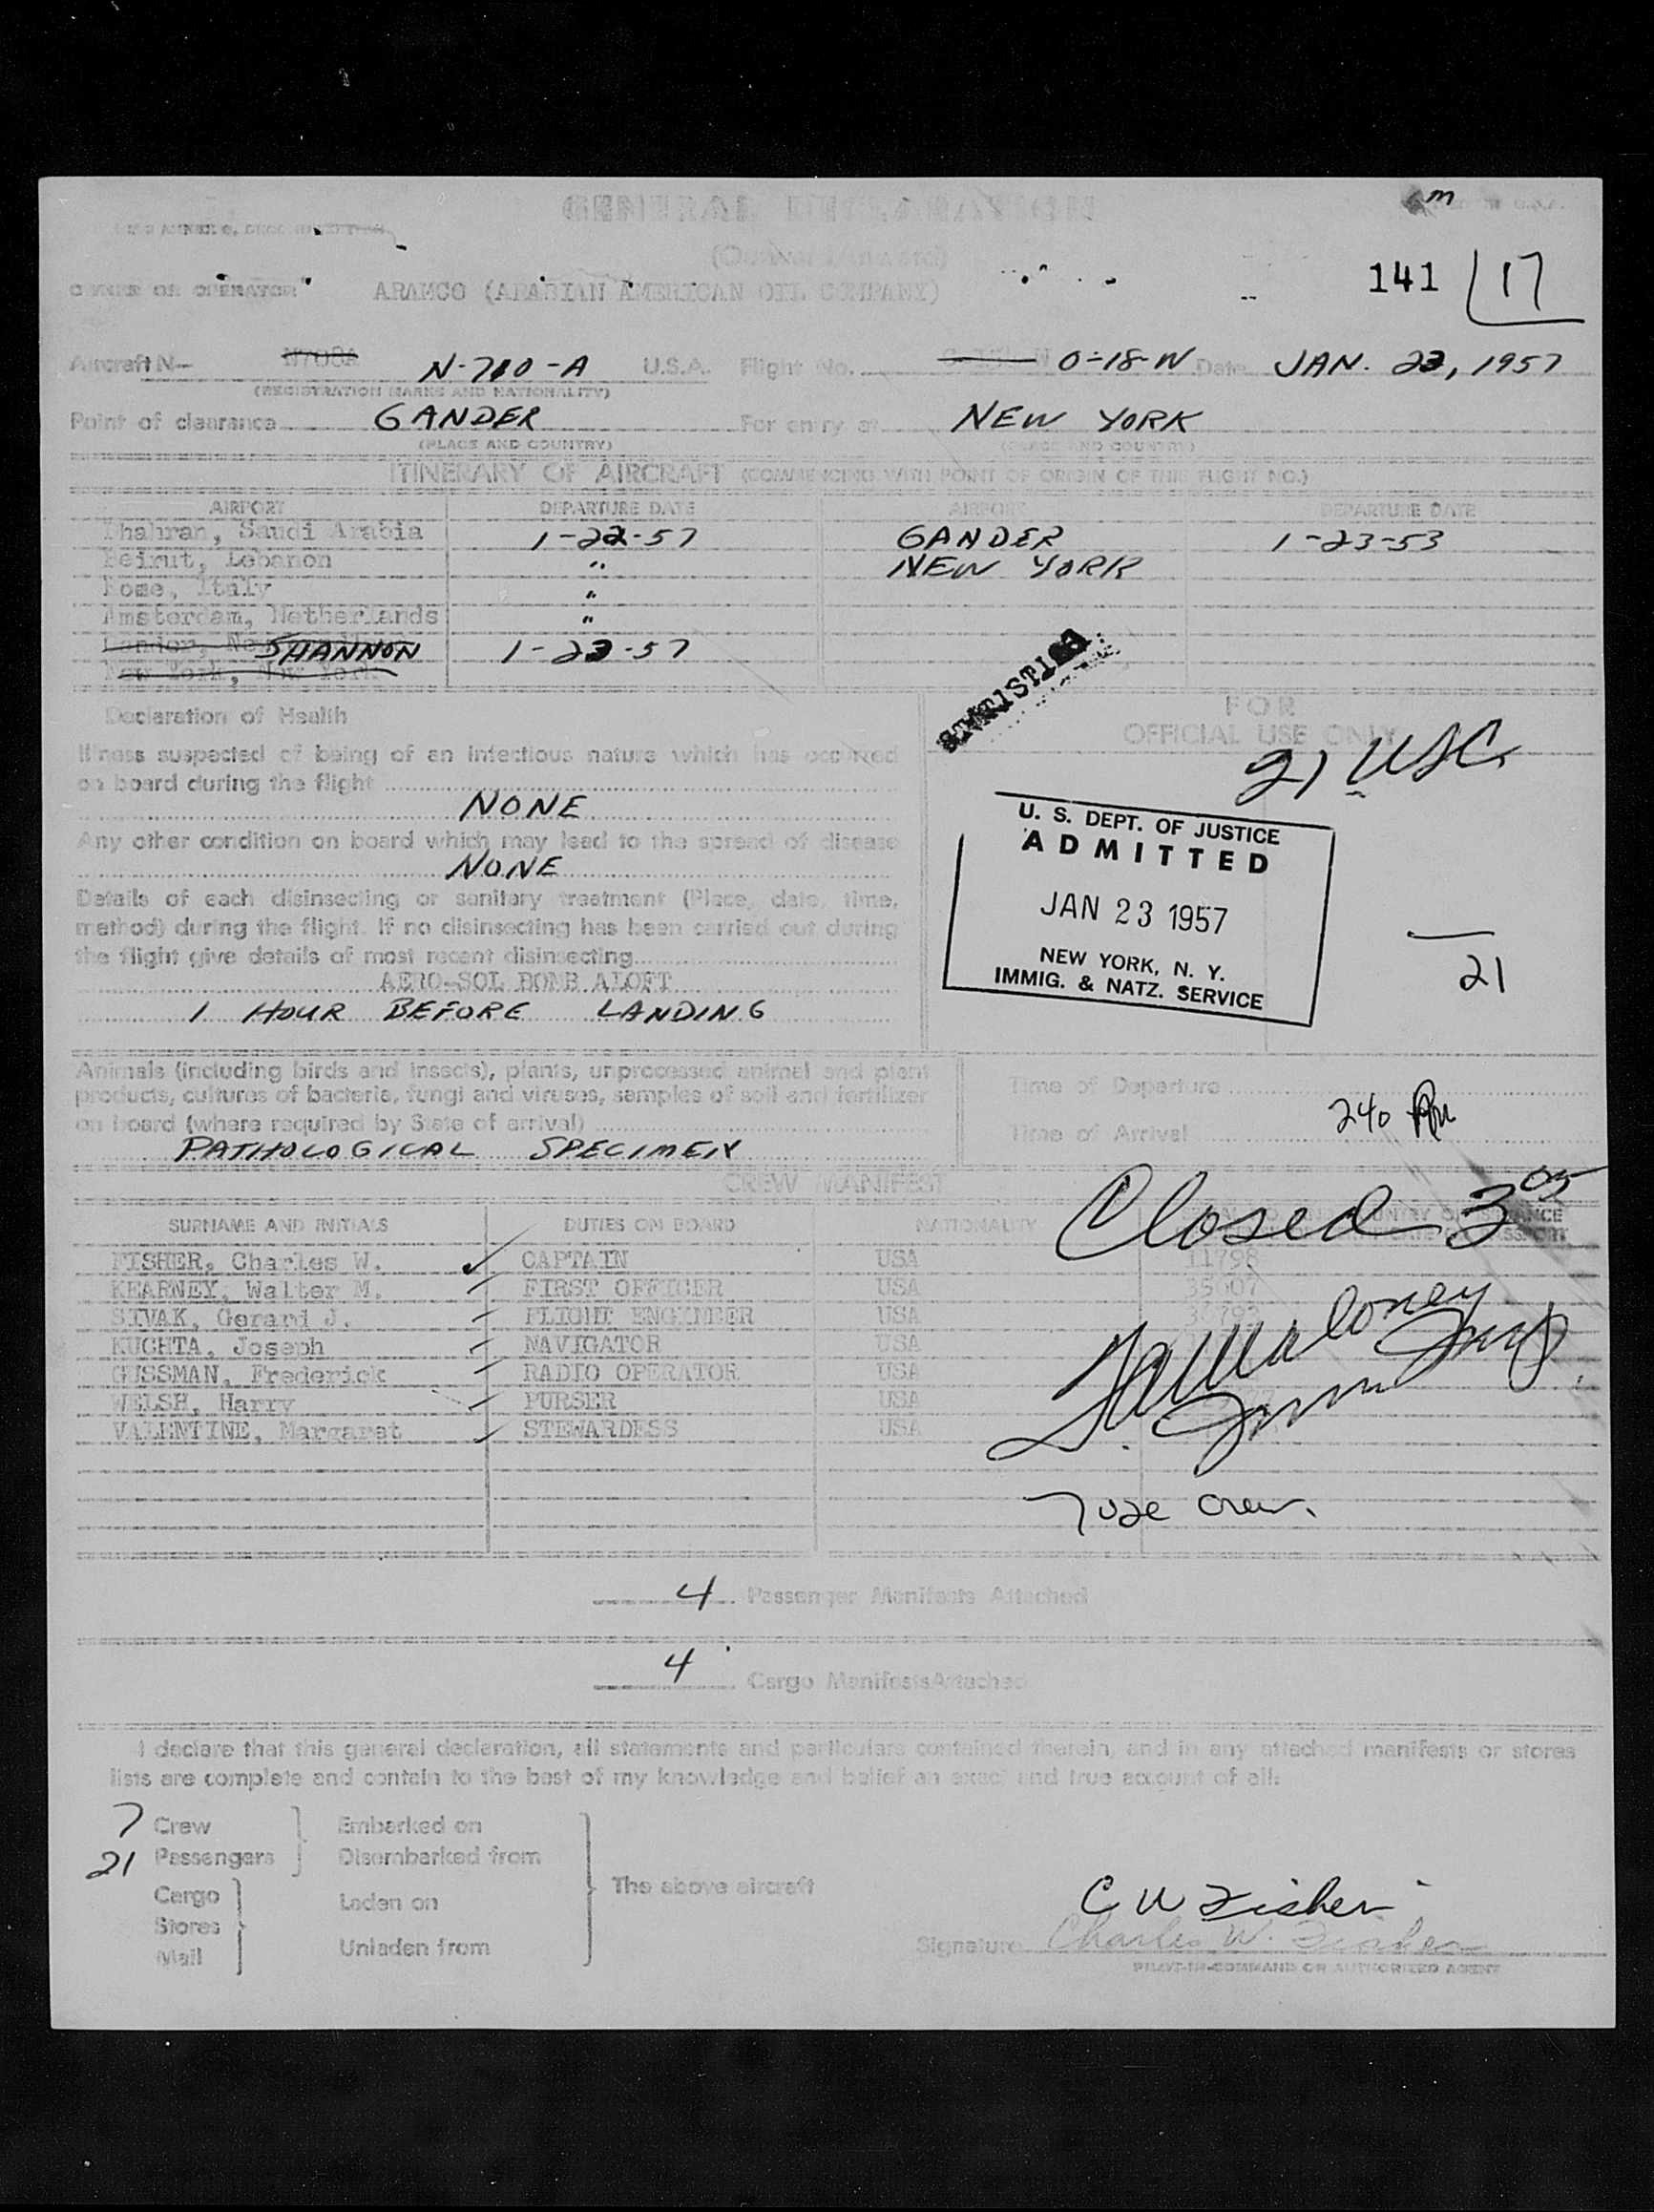 GENERAL DECLARATION
(Outward/Inward)
141 17
OWNER OR OPERATOR ARAMCO (ARABIAN AMERICAN OIL COMPANY)
Aircraft N- N708A N-710-A U.S.A. Flight No. 0-18-W Date JAN. 23, 1957
(REGISTRATION MARKS AND NATIONALITY)
Point of clearance GANDER For entry at NEW YORK
(PLACE AND COUNTRY) (PLACE AND COUNTRY)
ITINERARY OF AIRCRAFT (COMMENCING WITH POINT OF ORIGIN OF THIS FLIGHT NO.)
AIRPORT DEPARTURE DATE AIRPORT DEPARTURE DATE
Dhahran, Saudi Arabia 1-22-57 GANDER 1-23-53
Beirut, Lebanon " NEW YORK
Rome, Italy "
Amsterdam, Netherlands "
London, SHANNON 1-23-57
New York, New York
STATISTICS
Declaration of Health
FOR
OFFICIAL USE ONLY
Illness suspected of being of an infectious nature which has occurred
on board during the flight
NONE
Any other condition on board which may lead to the spread of disease
NONE
Details of each disinsecting or sanitary treatment (Place, date, time,
method) during the flight. If no disinsecting has been carried out during
the flight give details of most recent disinsecting
AERO-SOL BOMB ALOFT
1 HOUR BEFORE LANDING
21 USC
U. S. DEPT. OF JUSTICE
ADMITTED
JAN 23 1957
NEW YORK, N. Y.
IMMIG. & NATZ. SERVICE
21
Animals (including birds and insects), plants, unprocessed animal and plant
products, cultures of bacteria, fungi and viruses, samples of soil and fertilizer
on board (where required by State of arrival)
PATHOLOGICAL SPECIMEN
Time of Departure
Time of Arrival 240 PM
CREW MANIFEST
Closed 3 05
SURNAME AND INITIALS DUTIES ON BOARD NATIONALITY
FISHER, Charles W. CAPTAIN USA 11798
KEARNEY, Walter M. FIRST OFFICER USA 35607
SIVAK, Gerard J. FLIGHT ENGINEER USA
KUCHTA, Joseph NAVIGATOR USA
GUSSMAN, Frederick RADIO OPERATOR USA
WELSH, Harry PURSER USA
VALENTINE, Margaret STEWARDESS USA
7 use crew.
4 Passenger Manifests Attached
4 Cargo Manifests Attached
I declare that this general declaration, all statements and particulars contained therein, and in any attached manifests or stores
lists are complete and contain to the best of my knowledge and belief an exact and true account of all:
7 Crew Embarked on
21 Passengers Disembarked from
The above aircraft
Cargo Laden on
Stores
Mail Unladen from
C W Fisher
Signature Charles W. Fisher
PILOT-IN-COMMAND OR AUTHORIZED AGENT